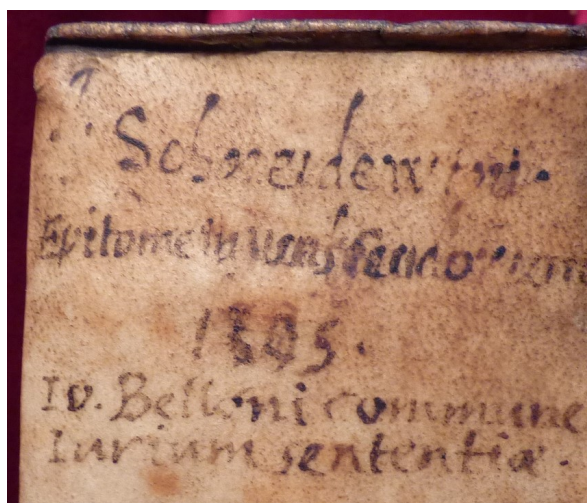 Schneidewini.
Epitome in usus feudorum
1595.
Io. Belloni commune
Iurium sententiæ.